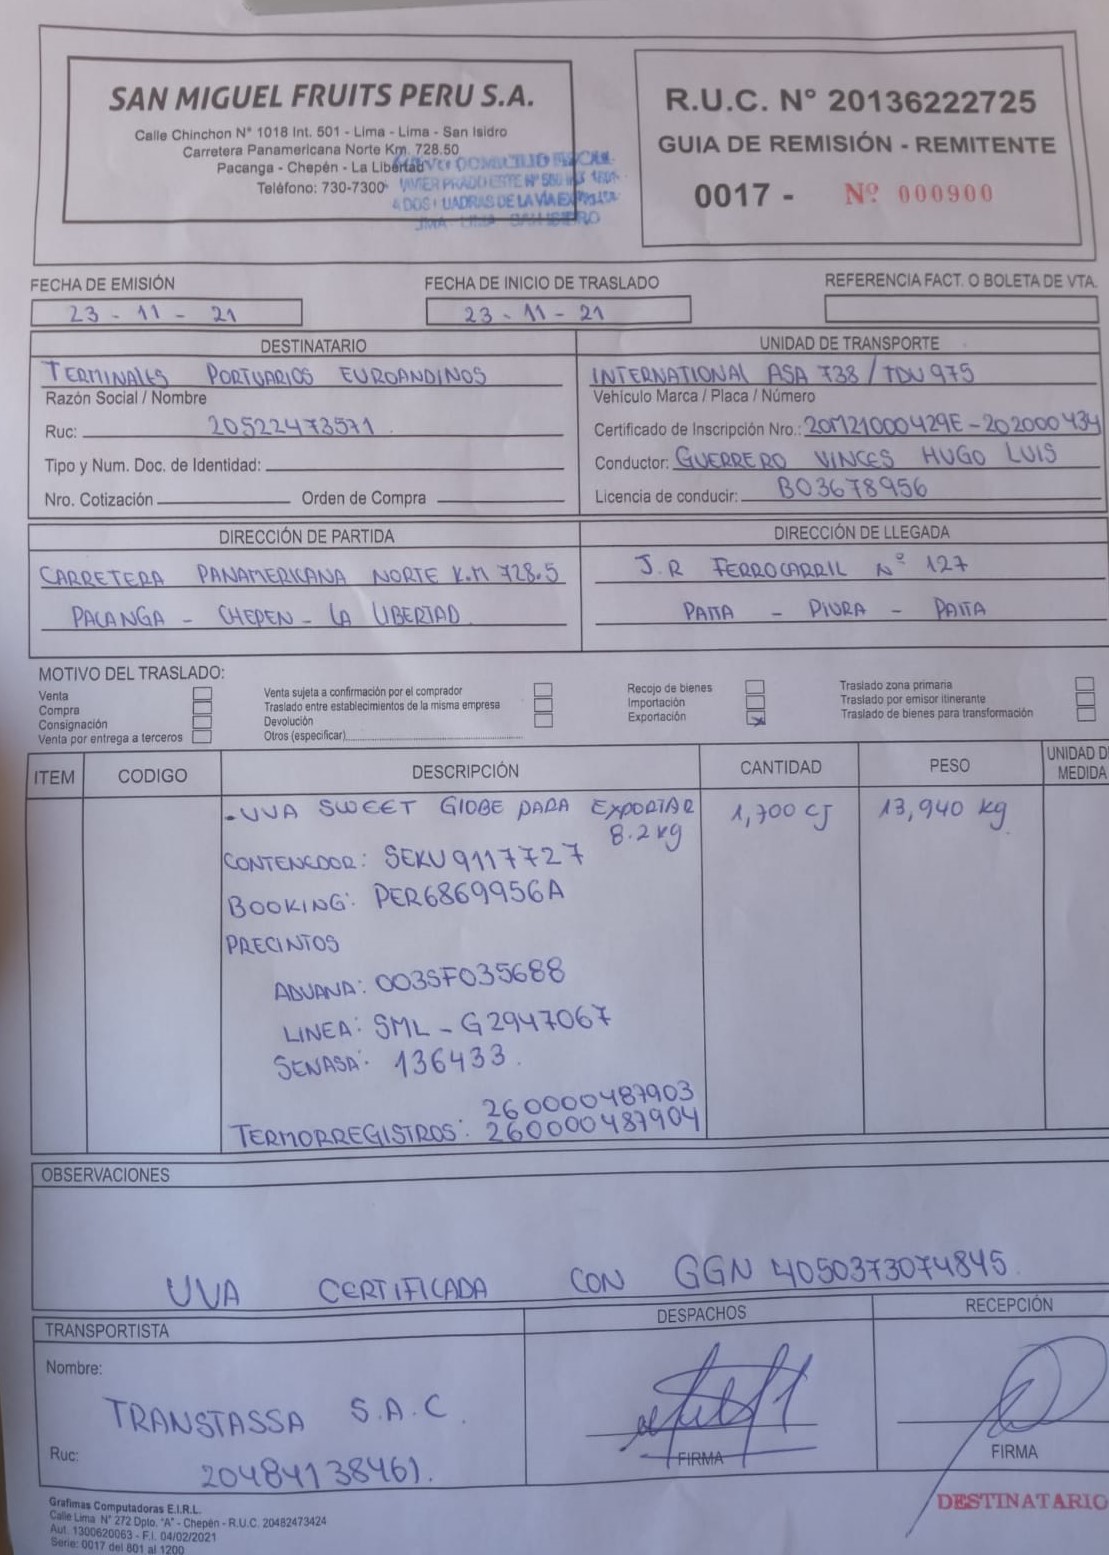 SAN MIGUEL FRUITS PERU S.A.
Calle Chinchon N° 1018 Int. 501 - Lima - Lima - San Isidro
Carretera Panamericana Norte Km. 728.50
Pacanga - Chepén - La Libertad
Teléfono: 730-7300
R.U.C. N° 20136222725
GUIA DE REMISIÓN - REMITENTE
0017 - Nº 000900
FECHA DE EMISIÓN
23 - 11 - 21
FECHA DE INICIO DE TRASLADO
23 - 11 - 21
REFERENCIA FACT. O BOLETA DE VTA.
DESTINATARIO
TERMINALES PORTUARIOS EUROANDINOS
Razón Social / Nombre
Ruc: 20522473571
Tipo y Num. Doc. de Identidad:
Nro. Cotización Orden de Compra
UNIDAD DE TRANSPORTE
INTERNATIONAL ASA 738 / TDU 975
Vehículo Marca / Placa / Número
Certificado de Inscripción Nro.: 20M21000429E - 202000434
Conductor: GUERRERO VINCES HUGO LUIS
Licencia de conducir: B03678956
DIRECCIÓN DE PARTIDA
CARRETERA PANAMERICANA NORTE K.M 728.5
PACANGA - CHEPEN - LA LIBERTAD
DIRECCIÓN DE LLEGADA
J.R FERROCARRIL Nº 127
PAITA - PIURA - PAITA
MOTIVO DEL TRASLADO:
Venta
Compra
Consignación
Venta por entrega a terceros
Venta sujeta a confirmación por el comprador
Traslado entre establecimientos de la misma empresa
Devolución
Otros (especificar)
Recojo de bienes
Importación
Exportación
Traslado zona primaria
Traslado por emisor itinerante
Traslado de bienes para transformación
ITEM CODIGO DESCRIPCIÓN CANTIDAD PESO UNIDAD D
MEDIDA
- UVA SWEET GlOBE PARA EXPORTAR 1,700 CJ 13,940 kg
8.2 kg
CONTENEDOR: SEKU9117727
BOOKING: PER6869956A
PRECINTOS
ADUANA: 003SF035688
LINEA: SML - G2947067
SENASA: 136433.
260000487903
TERMORREGISTROS: 260000487904
OBSERVACIONES
UVA CERTIFICADA CON GGN 4050373074845
TRANSPORTISTA
Nombre:
TRANSTASSA S.A.C.
Ruc:
20484138461.
DESPACHOS
FIRMA
RECEPCIÓN
FIRMA
DESTINATARIO
Grafimas Computadoras E.I.R.L.
Calle Lima N° 272 Dpto. "A" - Chepén - R.U.C. 20482473424
Aut. 1300620063 - F.I. 04/02/2021
Serie: 0017 del 801 al 1200